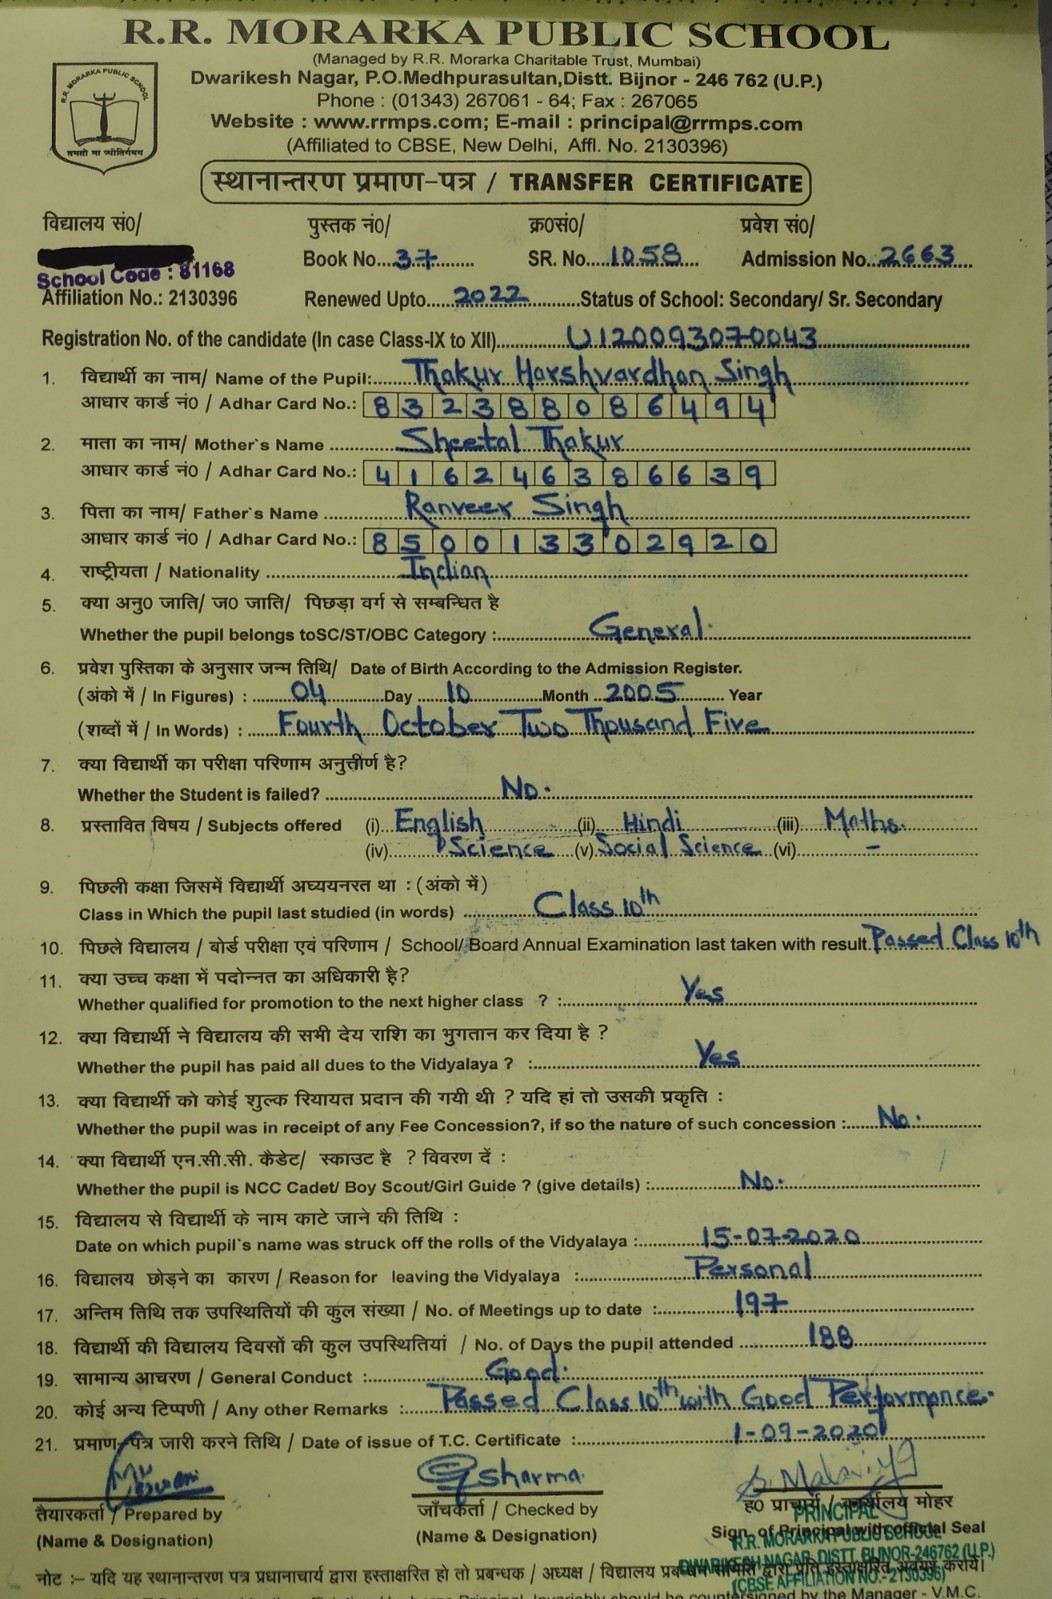 R.R. MORARKA PUBLIC SCHOOL
(Managed by R.R. Morarka Charitable Trust, Mumbai)
Dwarikesh Nagar, P.O.Medhpurasultan,Distt. Bijnor - 246 762 (U.P.)
Phone : (01343) 267061 - 64; Fax : 267065
Website : www.rrmps.com; E-mail : principal@rrmps.com
(Affiliated to CBSE, New Delhi, Affl. No. 2130396)
R.R. MORARKA PUBLIC SCHOOL
तमसो मा ज्योतिर्गमय
स्थानान्तरण प्रमाण-पत्र / TRANSFER CERTIFICATE
विद्यालय सं0/ पुस्तक नं0/ क्र0सं0/ प्रवेश सं0/
Book No. 37 SR. No. 1058 Admission No. 2663
School Code : 81168
Affiliation No.: 2130396 Renewed Upto 2022 Status of School: Secondary/ Sr. Secondary
Registration No. of the candidate (In case Class-IX to XII) U120093070043
1. विद्यार्थी का नाम/ Name of the Pupil: Thakur Harshvardhan Singh
आधार कार्ड नं0 / Adhar Card No.: 832388086494
2. माता का नाम/ Mother`s Name Sheetal Thakur
आधार कार्ड नं0 / Adhar Card No.: 416246386639
3. पिता का नाम/ Father`s Name Ranveer Singh
आधार कार्ड नं0 / Adhar Card No.: 850013302920
4. राष्ट्रीयता / Nationality Indian
5. क्या अनु0 जाति/ ज0 जाति/ पिछड़ा वर्ग से सम्बन्धित है
Whether the pupil belongs toSC/ST/OBC Category : General.
6. प्रवेश पुस्तिका के अनुसार जन्म तिथि/ Date of Birth According to the Admission Register.
(अंको में / In Figures) : 04 Day 10 Month 2005 Year
(शब्दों में / In Words) : Fourth October Two Thousand Five
7. क्या विद्यार्थी का परीक्षा परिणाम अनुत्तीर्ण है?
Whether the Student is failed? No.
8. प्रस्तावित विषय / Subjects offered (i) English (ii) Hindi (iii) Maths.
(iv) Science (v) Social Science (vi) -
9. पिछली कक्षा जिसमें विद्यार्थी अघ्ययनरत था : (अंको में)
Class in Which the pupil last studied (in words) Class 10th
10. पिछले विद्यालय / बोर्ड परीक्षा एवं परिणाम / School/ Board Annual Examination last taken with result Passed Class 10th
11. क्या उच्च कक्षा में पदोन्नत का अधिकारी है?
Whether qualified for promotion to the next higher class ? : Yes
12. क्या विद्यार्थी ने विद्यालय की सभी देय राशि का भुगतान कर दिया है ?
Whether the pupil has paid all dues to the Vidyalaya ? : Yes
13. क्या विद्यार्थी को कोई शुल्क रियायत प्रदान की गयी थी ? यदि हां तो उसकी प्रकृति :
Whether the pupil was in receipt of any Fee Concession?, if so the nature of such concession : No.
14. क्या विद्यार्थी एन.सी.सी. कैडेट/ स्काउट है ? विवरण दें :
Whether the pupil is NCC Cadet/ Boy Scout/Girl Guide ? (give details) : No.
15. विद्यालय से विद्यार्थी के नाम काटे जाने की तिथि :
Date on which pupil`s name was struck off the rolls of the Vidyalaya : 15-07-2020
16. विद्यालय छोड़ने का कारण / Reason for leaving the Vidyalaya : Personal
17. अन्तिम तिथि तक उपस्थितियों की कुल संख्या / No. of Meetings up to date : 197
18. विद्यार्थी की विद्यालय दिवसों की कुल उपस्थितियां / No. of Days the pupil attended 188
19. सामान्य आचरण / General Conduct : Good.
20. कोई अन्य टिप्पणी / Any other Remarks : Passed Class 10th with Good Performance.
21. प्रमाण-पत्र जारी करने तिथि / Date of issue of T.C. Certificate : 1-09-2020
Sharma
S. Malaviya
तैयारकर्ता / Prepared by जाँचकर्ता / Checked by ह0 प्राचार्य / कार्यालय मोहर
(Name & Designation) (Name & Designation) Sign. of Principal with official Seal
PRINCIPAL
R.R. MORARKA PUBLIC SCHOOL
DWARIKESH NAGAR, DISTT. BIJNOR-246762 (U.P.)
(CBSE AFFILIATION NO.-2130396)
नोट :– यदि यह स्थानान्तरण पत्र प्रधानाचार्य द्वारा हस्ताक्षरित हो तो प्रबन्धक / अध्यक्ष / विद्यालय प्रबन्धन समिति द्वारा प्रति हस्ताक्षरित अवश्य करायें।
by the Manager - V.M.C.